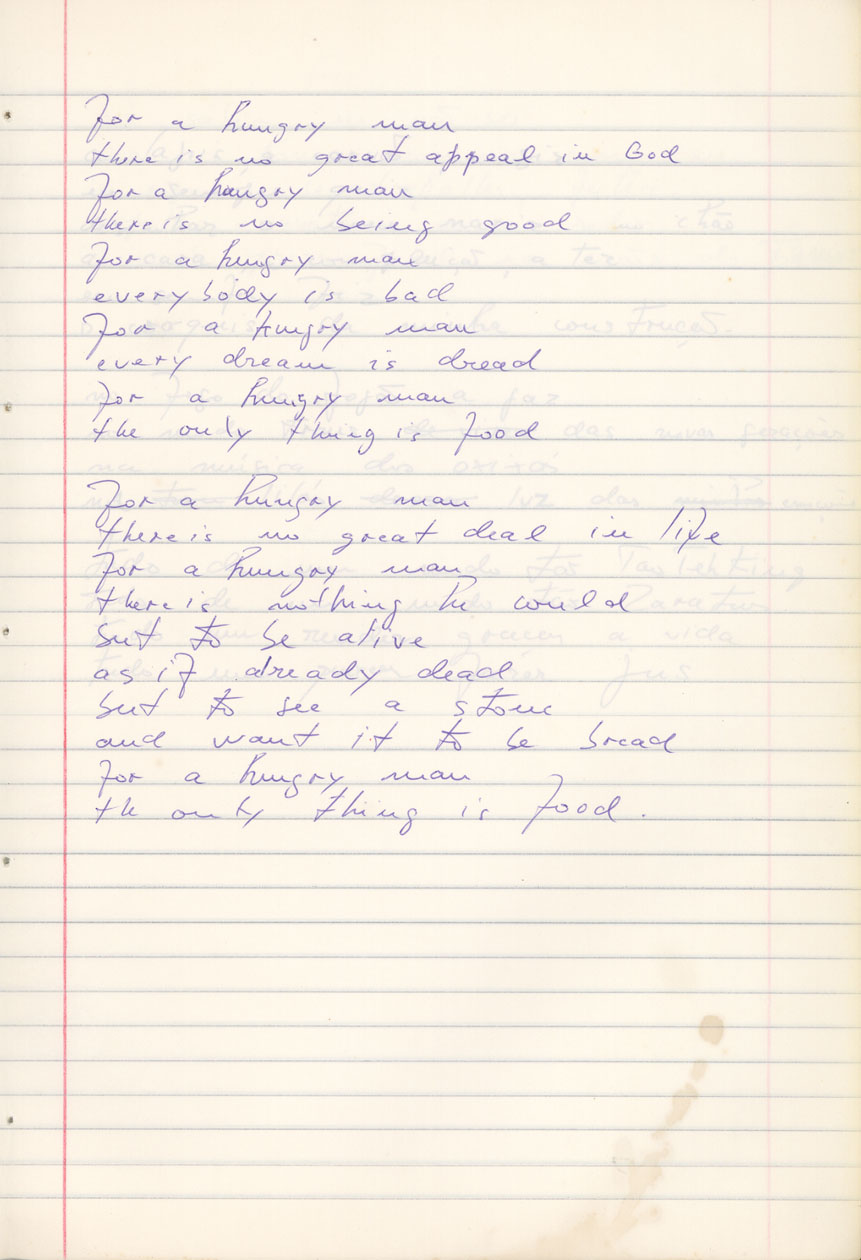 for a hungry man
there is no great appeal in God
for a hungry man
there is no being good
for a hungry man
everybody is bad
for a hungry man
every dream is dread
for a hungry man
the only thing is food
for a hungry man
there is no great deal in life
for a hungry man
there is nothing he could
but to be alive
as if already dead
but to see a stone
and want it to be bread
for a hungry man
the only thing is food.